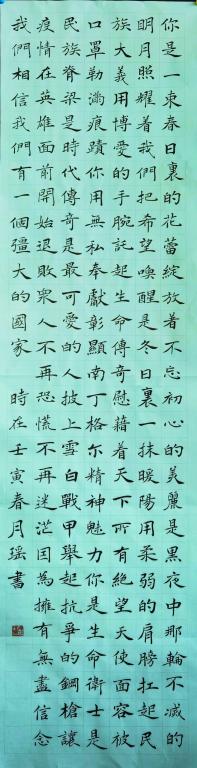 你是一束春日裏的花蕾綻放着不忘初心的美麗是黑夜中那輪不滅的
明月照耀着我們把希望喚醒是冬日裏一抹暖陽用柔弱的肩膀扛起民
族大義用博愛的手腕託起生命傳奇慰藉着天下所有絕望天使面容被
口罩勒滿痕蹟你用無私奉獻彰顯南丁格尔精神魅力你是生命衛士是
民族脊梁是時代傳奇是最可愛的人披上雪白戰甲舉起抗爭的鋼槍讓
疫情在英雄面前開始退敗衆人不再恐慌不再迷茫因為擁有無盡信念
我們相信我們有一個彊大的國家 時在壬寅春月瑶書